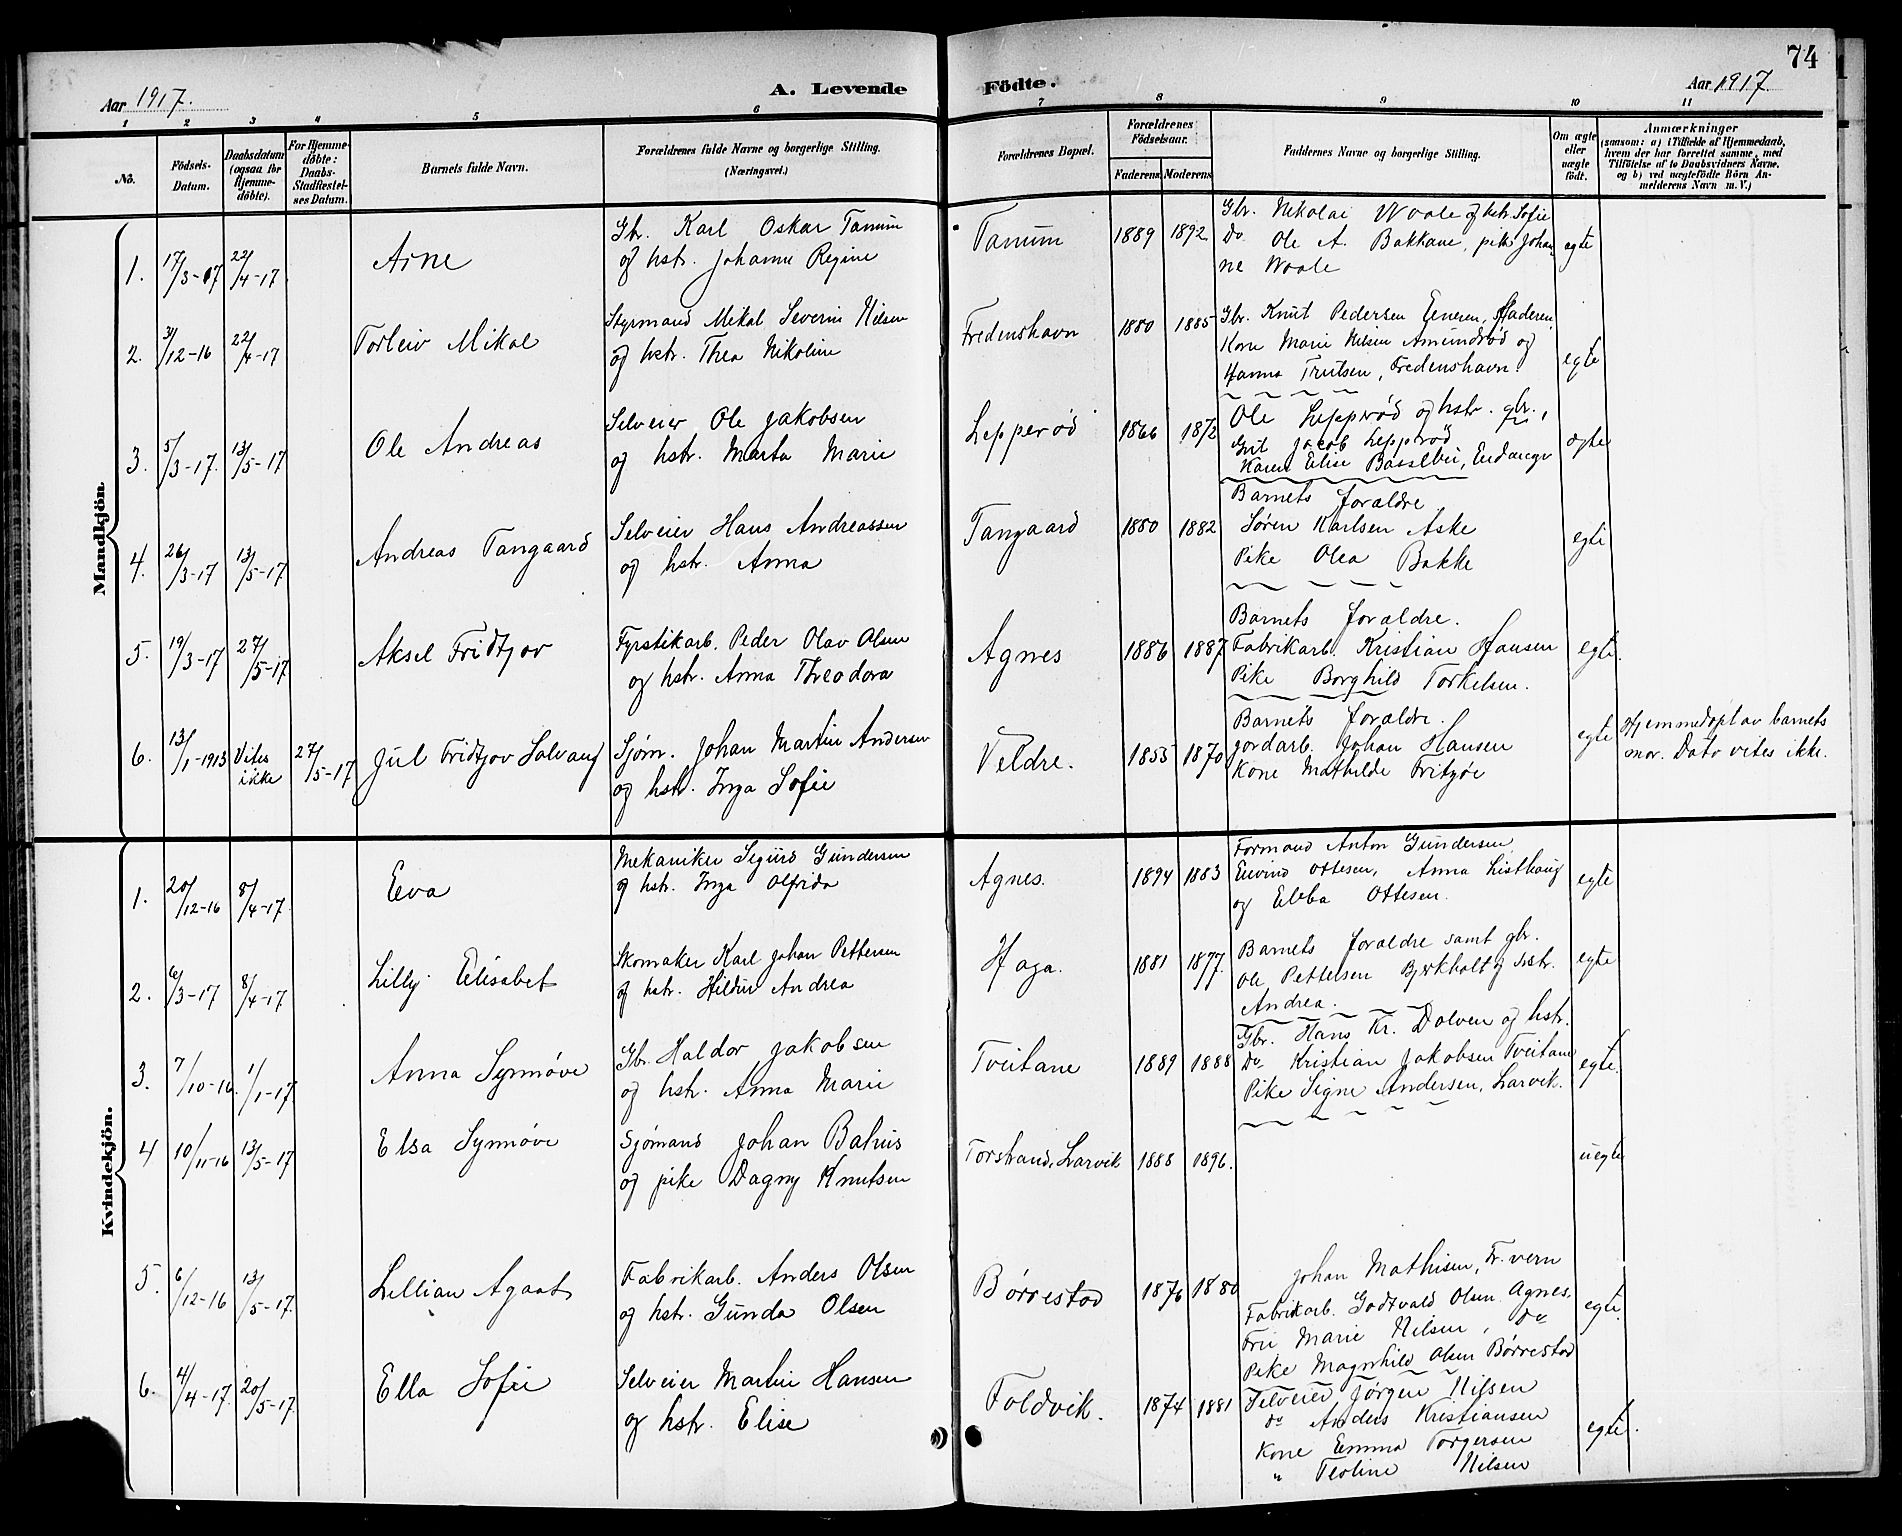 74
Aar 1917.
A. Levende Födte.
Aar 1917.
1 2 3 4 5 6 7 8 9 10 11
No.
Födsels-
Datum.
Daabsdatum
(ogsaa for
Hjemme-
döbte).
For Hjemme-
döbte:
Daabs-
Stadfæstel-
ses Datum.
Barnets fulde Navn.
Forældrenes fulde Navne og borgerlige Stilling.
(Næringsvei.)
Forældrenes Bopæl.
Forældrenes
Födselsaar.
Faderens Moderens
Faddernes Navne og borgerlige Stilling.
Om ægte
eller
uægte
födt.
Anmærkninger
(saasom: a) i Tilfælde af Hjemmedaab,
hvem der har forrettet samme, med
Tilföielse af to Daabsvidners Navne,
og b) ved uægtefödte Börn An-
melderens Navn m. V.)
Mandkjön.
1. 17/3-17 22/4-17 Arne
Gbr. Karl Oskar Tanum
og hstr. Johanne Regine
Tanum 1889 1892
Gbr. Nikolai Waale og hstr. Sofie
Do Ole A. Bakkane, pike Johan-
ne Waale
egte
2. 3/12-16 22/4-17 Torleiv Mikal
Styrmand Mikal Severin Nilsen
og hstr. Thea Nikoline
Fredenshavn 1880 1885
Gbr. Knut Pedersen Eeneren, Faderen,
Kone Marie Nilsen Amundrød og
Hanna Trulsen, Fredenshavn.
egte
3. 5/3-17. 13/5-17 Ole Andreas
Selveier Ole Jakobsen
og hstr. Marta Marie
Lepperød 1866 1872
Ole Lepperød og hstr. gbr.,
Gut Jacob Lepperød
Karen Elise
egte
4. 26/3-17 13/5-17. Andreas Tangaard
Selveier Hans Andreassen
og hstr. Anna
Tangaard 1880 1882
Barnets forældre
Søren Karlsen Aske
Pike Olea Bakke
egte
5. 19/3-17 27/5-17 Aksel Fridtjov
Fyrstikarb. Peder Olav Olsen
og hstr. Anna Theodora
Agnes 1886 1887
Barnets forældre.
Fabrikarb. Kristian Hansen
Pike Borghild Torkelsen.
egte.
6. 13/1-1913 Vites ikke 27/5-17 Jul Fridtjov Solvang
Sjøm. Johan Martin Andersen
og hstr. Inga Sofie
Veldre. 1855 1870
Barnets forældre.
Jordarb. Johan Hansen
Kone Mathilde Fritzøe
egte
Hjemmedøpt av barnets
mor. Dato vites ikke.
Kvindekjön.
1. 20/12-16 8/4-17. Eva
Mekaniker Sigurd Gundersen
og hstr. Inga Alfrida
Agnes. 1894 1883
Formand Anton Gundersen,
Eivind Ottesen, Anna Listhaug
og Ebba Ottesen.
egte
2. 6/3-17 8/4-17 Lilly Elisabet
Skomaker Karl Johan Pettersen
og hstr. Hildur Andrea
Haga. 1881 1877.
Barnets forældre samt gbr.
Ole Pettersen Bjerkholt og hstr.
Andrea.
egte
3. 7/10-16 1/1-17 Anna Synnøve
Gbr. Haldor Jakobsen
og hstr. Anna Marie
Tveitane 1889 1888
Gbr. Hans Kr. Dolven og hstr.
Do Kristian Jakobsen Tveitane
Pike Signe Andersen, Larvik.
egte.
4 10/11-16 13/5-17 Elsa Synnøve
Sjømand Johan Bahus
og pike Dagny Knutsen
Torstrand, Larvik 1888 1896.
uegte
5. 6/12-16 13/5-17. Lillian Agaat
Fabrikarb. Anders Olsen
og hstr. Gunda Olsen
Børrestad 1876 1880
Johan Mathisen, Fr.vern
Fabrikarb. Godtvald Olsen Agnes.
Fru Marie Nilsen, Do
Pike Magnhild Olsen Børrestad
egte.
6. 4/4-17. 20/5-17. Ella Sofie
Selveier Martin Hansen
og hstr. Elise
Foldvik. 1874 1881
Selveier Jørgen Nilsen
do Anders Kristiansen
Kone Emma Torgersen
" Teoline Nilsen
egte.